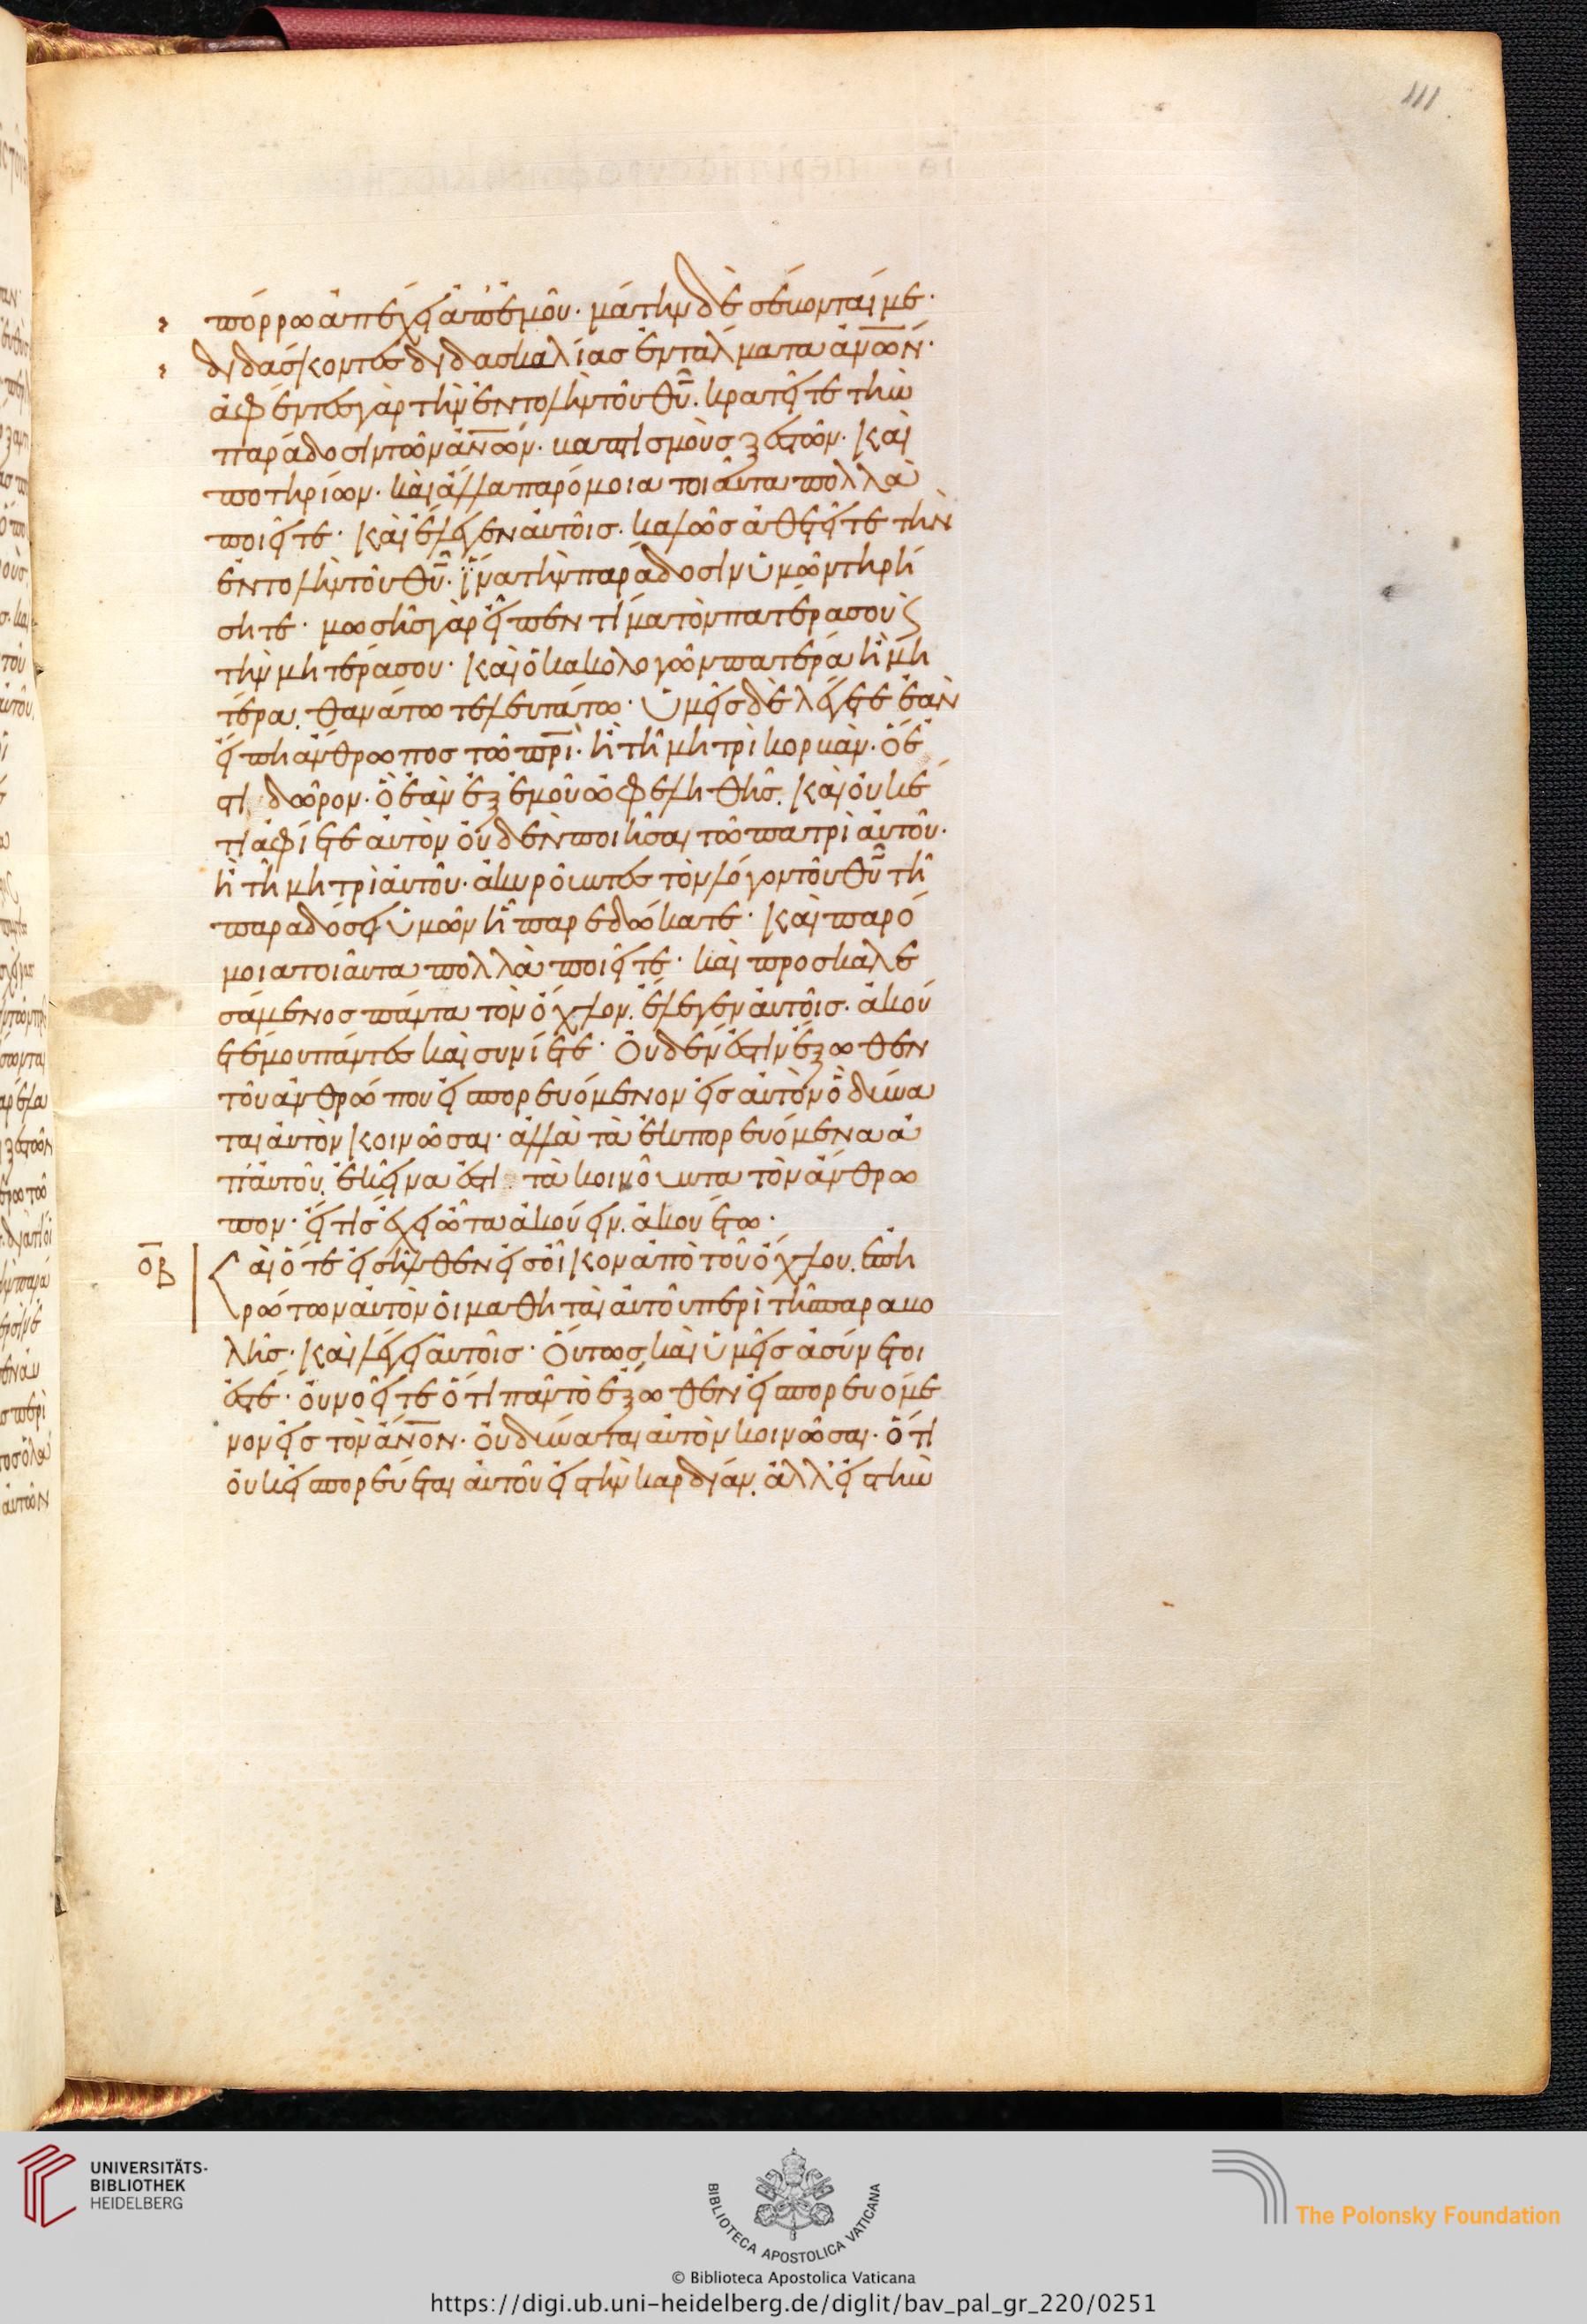 111
πόρρω ἀπέχει ἀπ' ἐμοῦ· μάτην δὲ σέβονταί με·
διδάσκοντες διδασκαλίας ἐντάλματα ἀν̅ων·
ἀφέντες γὰρ τὴν ἐντολὴν τοῦ θυ̅· κρατεῖτε τὴν
παράδοσιν τῶν ἀν̅ων· βαπτισμοὺς ξεστῶν· καὶ
ποτηρίων· καὶ ἄλλα παρόμοια τοιαῦτα πολλὰ
ποιεῖτε· καὶ ἔλεγεν αὐτοῖς· καλῶς ἀθετεῖτε τὴν
ἐντολὴν τοῦ θυ̅· ἵνα τὴν παράδοσιν ὑμῶν τηρή
σητε· μωσῆς γὰρ εἶπεν τίμα τὸν πατέρα σου ϗ
τὴν μητέρα σου· καὶ ὁ κακολογῶν πατέρα ἢ μη
τέρα. θανάτω τελευτάτω· ὑμεῖς δὲ λέγετε ἐὰν
εἴπη ἄνθρωπος τῶ πρι̅· ἢ τῆ μητρὶ κορβάν· ὅ ἐ
στι δῶρον· ὃ ἐὰν ἐξ ἐμοῦ ὠφεληθῆς. καὶ οὐκέ
τι ἀφίετε αὐτὸν οὐδὲν ποιῆσαι τῶ πατρὶ αὐτοῦ·
ἢ τῆ μητρὶ αὐτοῦ· ἀκυροῦντες τὸν λόγον τοῦ θυ̅ τῆ
παραδόσει ὑμῶν ἧ παρεδώκατε· καὶ παρό
μοια τοιαῦτα πολλὰ ποιεῖτε· καὶ προσκαλε
σάμενος πάντα τὸν ὄχλον. ἔλεγεν αὐτοῖς· ἀκού
ετέ μου πάντες καὶ συνίετε· Οὐδέν ἐστιν ἔξωθεν
τοῦ ἀνθρώπου εἰσπορευόμενον εἰς αὐτὸν ὃ δύνα
ται αὐτὸν κοινῶσαι· ἀλλὰ τὰ ἐκπορευόμενα ἀ
π' αὐτοῦ. ἐκεῖνα ἐστι τὰ κοινοῦντα τὸν ἄνθρω
πον· εἴ τις ἔχει ὦτα ἀκούειν. ἀκουέτω·
ο̅β Καὶ ὅτε εἰσῆλθεν εἰς οἶκον ἀπὸ τοῦ ὄχλου. ἐπη
ρώτων αὐτὸν οἱ μαθηταὶ αὐτοῦ περὶ τῆς παραβο
λῆς· καὶ λέγει αὐτοῖς· Οὕτως καὶ ὑμεῖς ἀσύνετοι
ἐστέ· οὐ νοεῖτε ὅτι πᾶν τὸ ἔξωθεν εἰσπορευόμε
νον εἰς τὸν ἄν̅ον· οὐ δύναται αὐτὸν κοινῶσαι· ὅτι
οὐκ εἰσπορεύεται αὐτοῦ εἰς τὴν καρδίαν. ἀλλ' εἰς τὴν
UNIVERSITÄTS-
BIBLIOTHEK
HEIDELBERG
BIBLIOTECA APOSTOLICA VATICANA
The Polonsky Foundation
© Biblioteca Apostolica Vaticana
https://digi.ub.uni-heidelberg.de/diglit/bav_pal_gr_220/0251